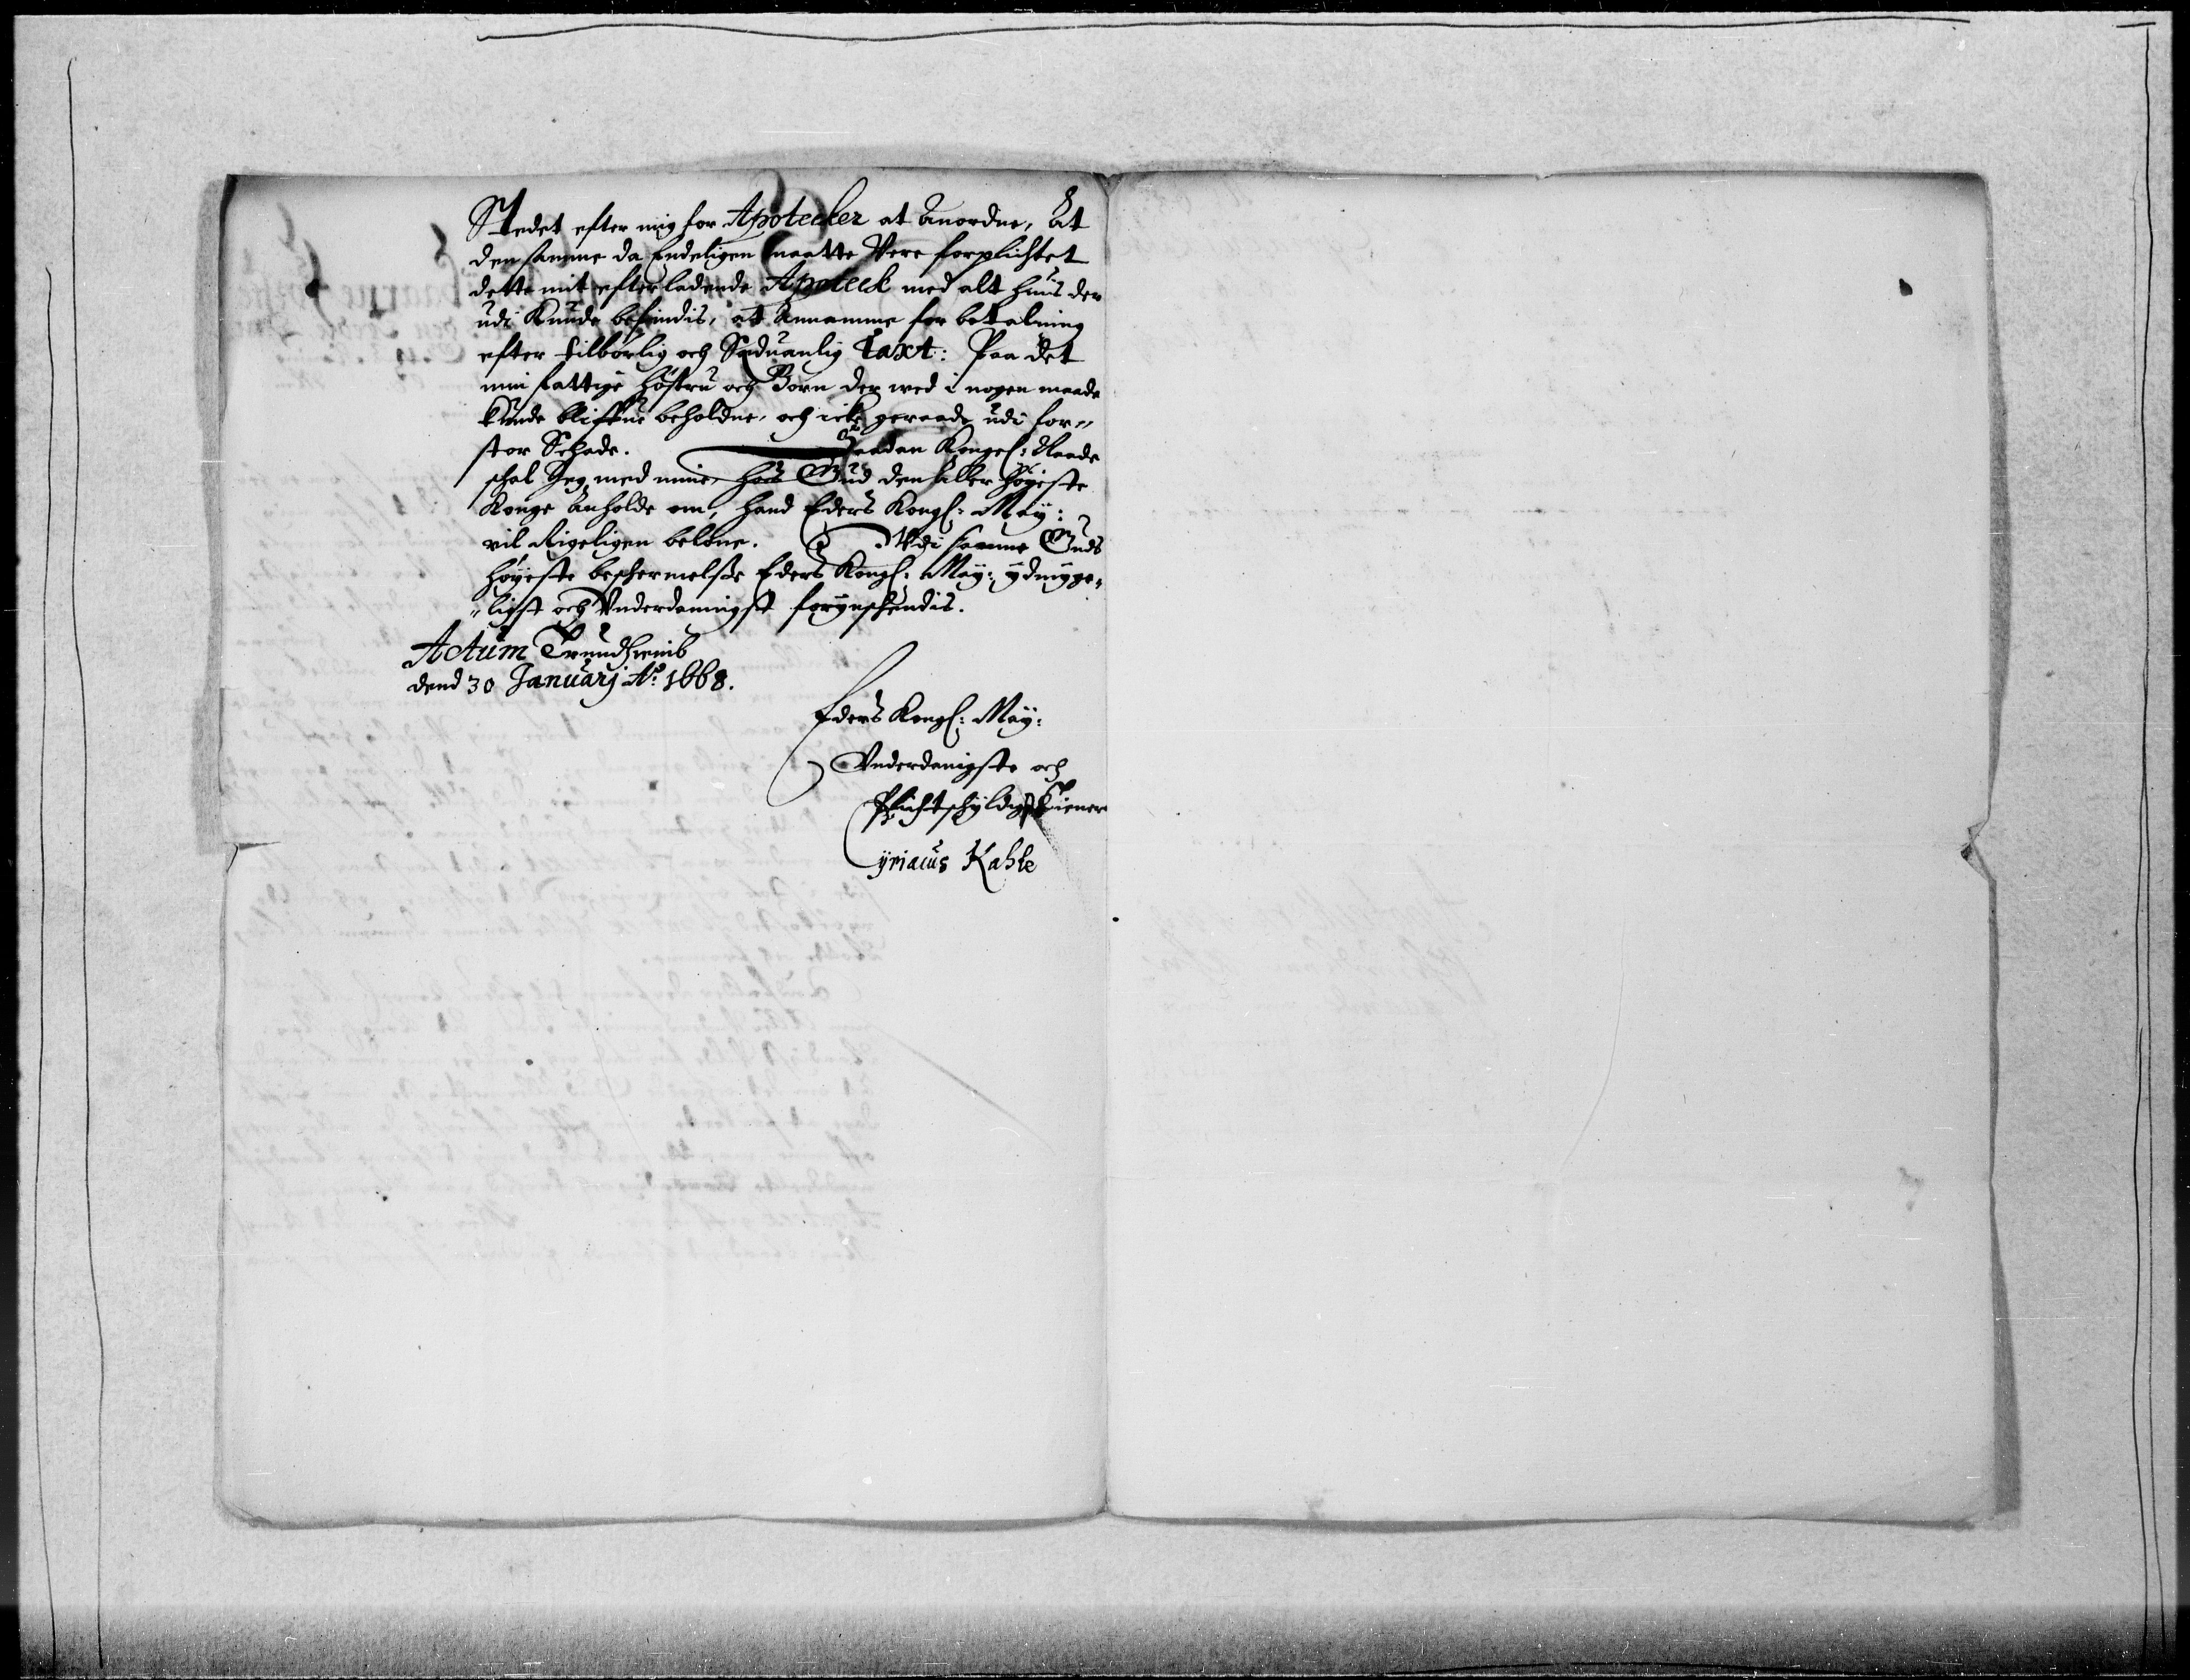 Stedet efter mig for Apotecker at anordne, at
den samme da Endeligen maatte Vere forplichtet
dette mit efterladende Apoteck med alt huis der
udi kunde befindis, at annamme for betalning
efter tilbørlig och Sæduanlig Taxt: Paa det
min fattige høstru och Børn der wed i nogen maade
kunde bliffue beholdne, och icke geraade udi for-
stor Schade. Saadan Kongel: Naade
schal Jeg med mine hos Gud den aller høyeste
Konge anholde om, hand Eders Kongl: May:
vil Rigeligen beløne. Udi samme Guds
høyeste beschermelsse Eders Kongl: May: ydmyge-
ligst och Vnderdanigst forynschendis.
Actum Trundhiemb
dend 30 Januarj Ao: 1668.
Eders Kongl: May:
Vnderdanigste och
Plichtschyldigst Tiener
Cyriacus Kahle